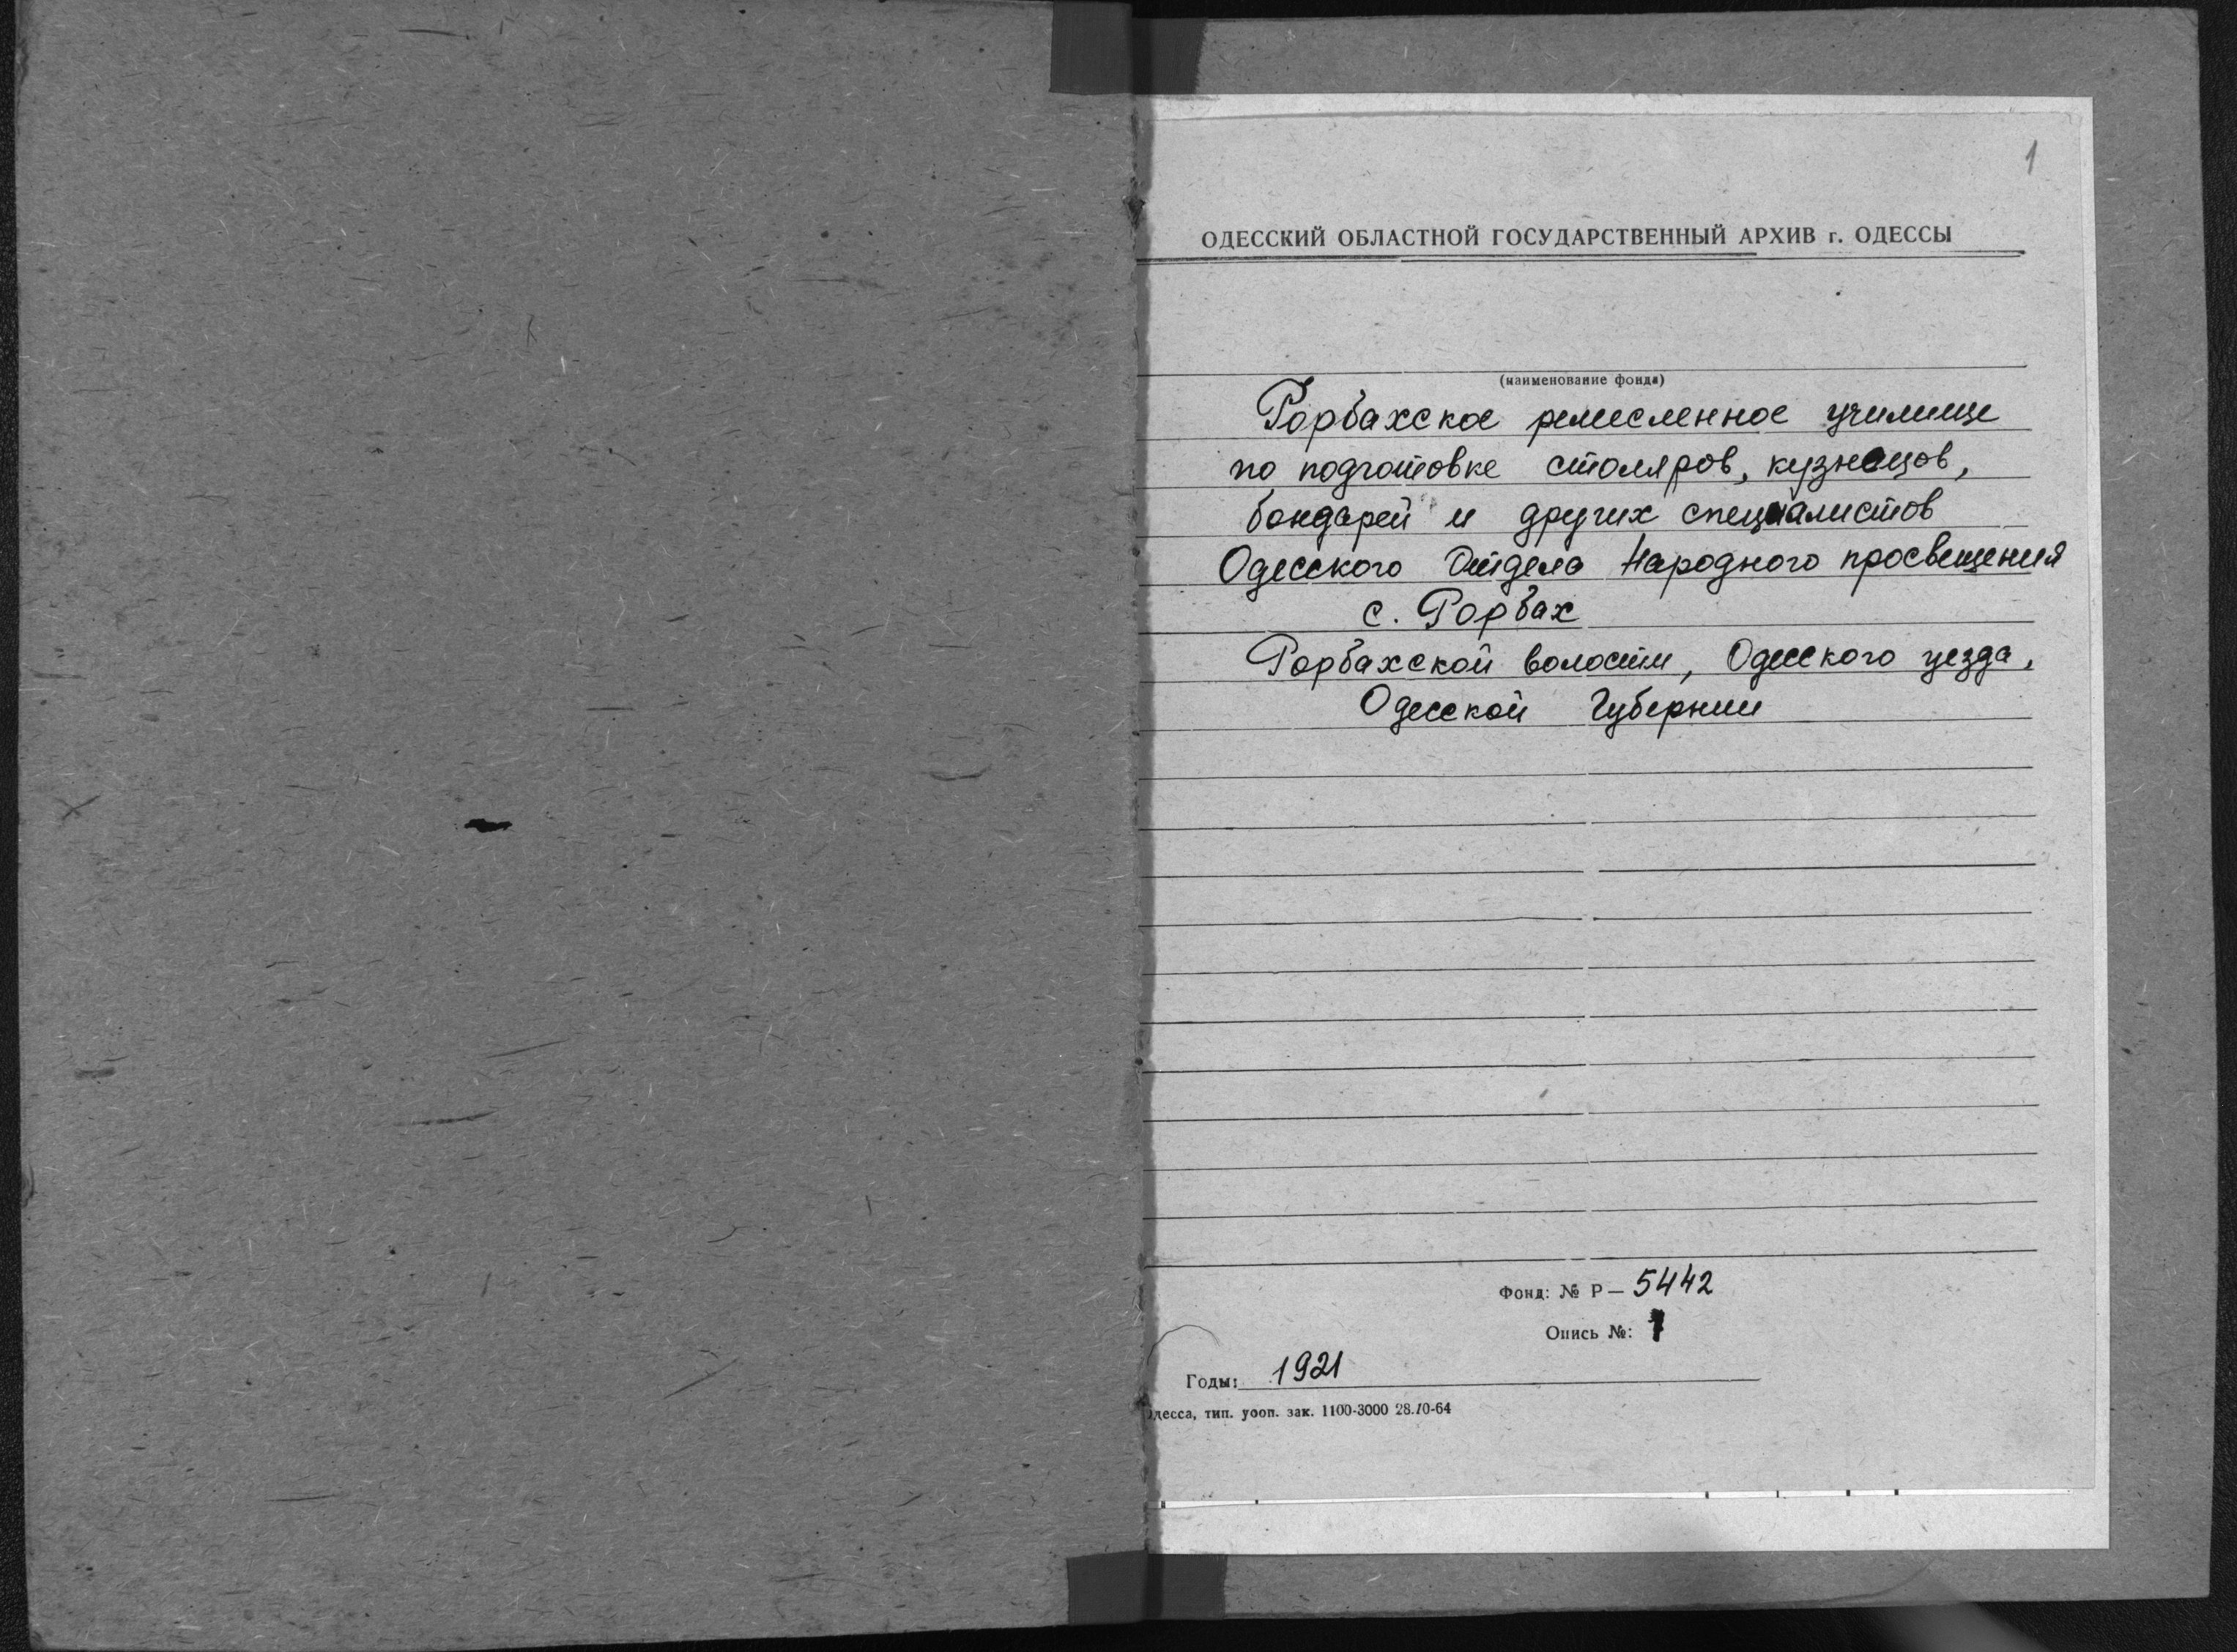 1
ОДЕССКИЙ ОБЛАСТНОЙ ГОСУДАРСТВЕННЫЙ АРХИВ г. ОДЕССЫ
(наименование фонда)
Рорбахское ремесленное училище
по подготовке столяров, кузнецов,
бондарей и других специалистов
Одесского Отдела Народного просвещения
с. Рорбах
Рорбахской волости, Одесского уезда,
Одесской Губернии
Фонд: № Р — 5442
Опись №: 1
Годы: 1921
Одесса, тип. уооп. зак. 1100-3000 28.10-64